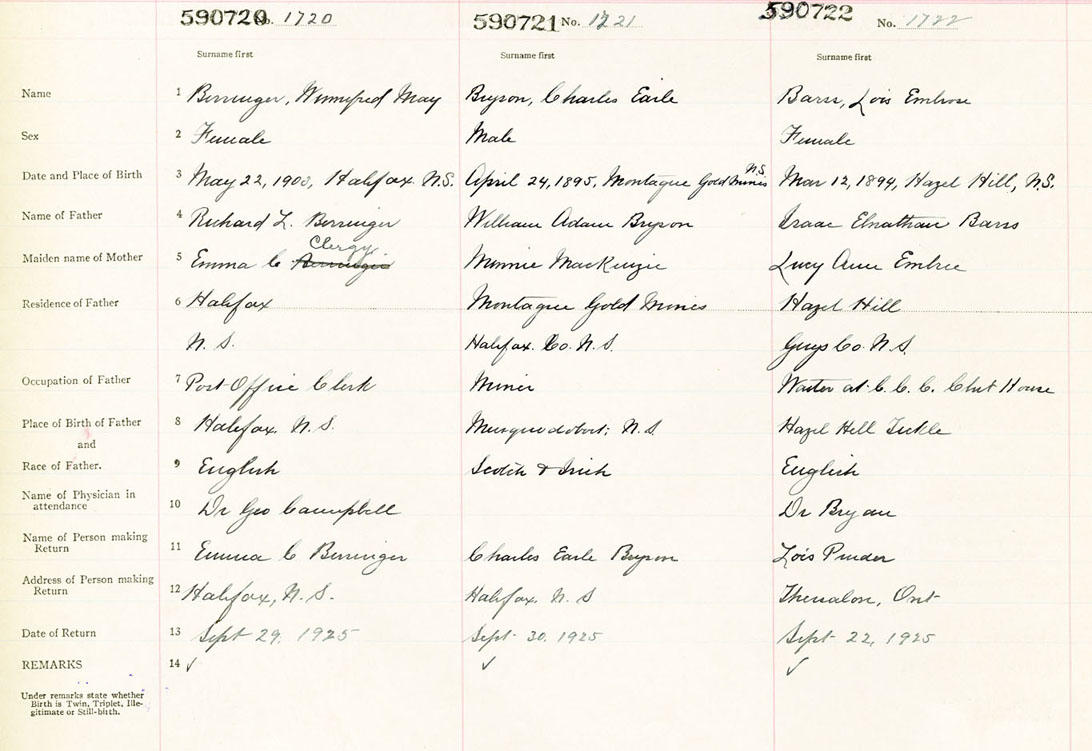 590720 No. 1720 590721 No. 1721 590722 No. 1722
Surname first Surname first Surname first
Name 1 Berringer, Winnifred May Bryson, Charles Earle Barss, Lois Embrose
Sex 2 Female Male Female
Date and Place of Birth 3 May 22, 1903, Halifax. N.S. April 24, 1895, Montague Gold Mines N.S. Mar 12, 1894, Hazel Hill, N.S.
Name of Father 4 Richard L. Berringer William Adam Bryson Isaac Elnathan Barss
Clergy
Maiden name of Mother 5 Emma C Berringer Minnie MacKenzie Lucy Anne Embree
Residence of Father 6 Halifax Montague Gold Mines Hazel Hill
N. S. Halifax. Co. N. S. Guys Co. N. S.
Occupation of Father 7 Post Office Clerk Miner Waiter at C. C. C. Club House
Place of Birth of Father 8 Halifax. N. S. Musquodobort; N. S. Hazel Hill Tickle
and
Race of Father. 9 English Scotch & Irish English
Name of Physician in
attendance 10 Dr Geo Campbell Dr Bryan
Name of Person making
Return 11 Emma C Berringer Charles Earle Bryson Lois Pruder
Address of Person making
Return 12 Halifax, N. S. Halifax. N. S Thessalon, Ont
Date of Return 13 Sept 29, 1925 Sept 30, 1925 Sept 22, 1925
REMARKS 14 ✓ ✓ ✓
Under remarks state whether
Birth is Twin, Triplet, Ille-
gitimate or Still-birth.